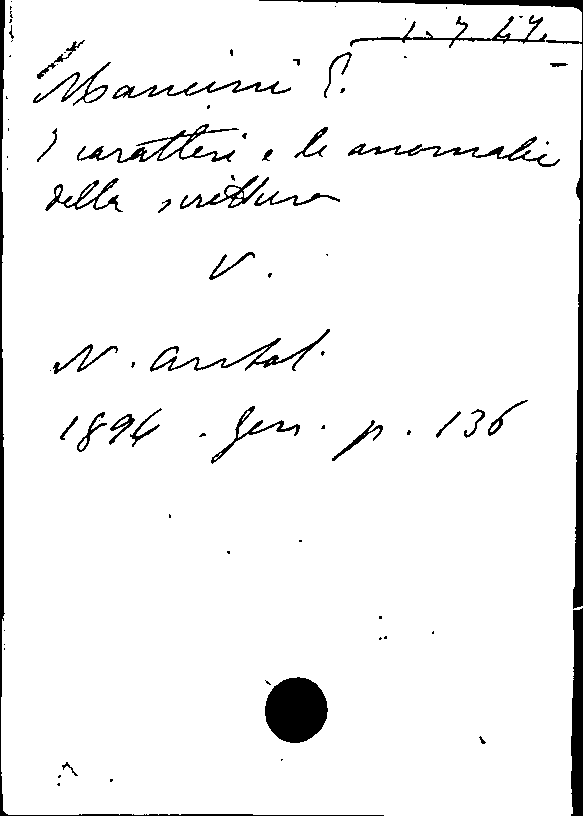 1. 7 27.
Mancini E.
I caratteri e le anomalie
della scrittura
V.
N. Antol.
1894. Gen. p. 136